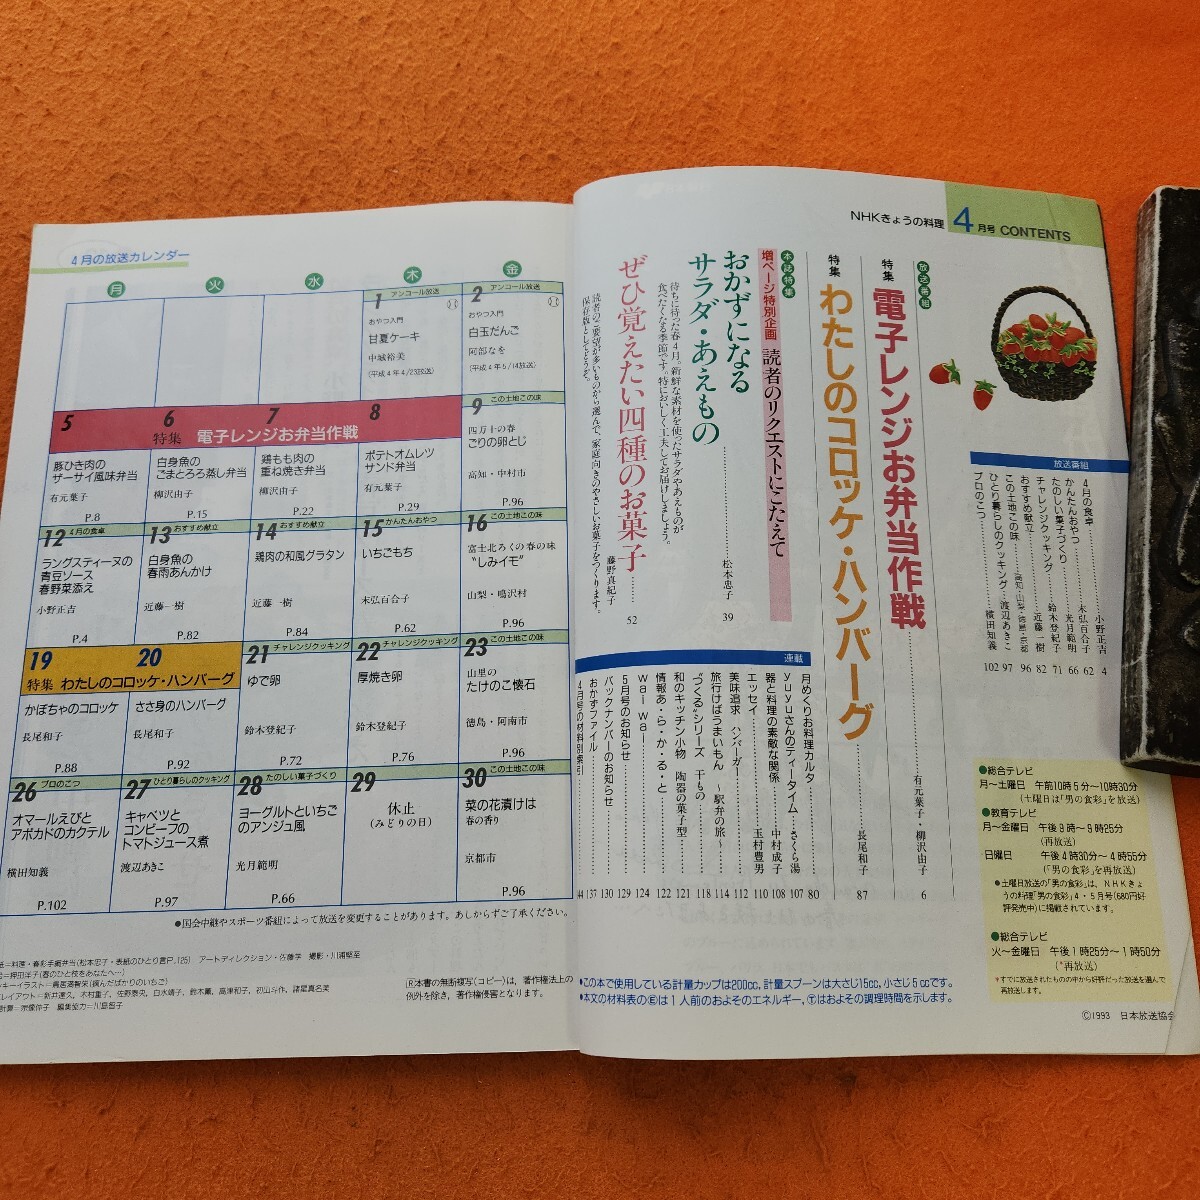 4月の放送カレンダー
月
火
水
木
金
アンコール放送
1
おやつ入門
甘夏ケーキ
中城裕美
(平成4年4/23放送)
アンコール放送
2
おやつ入門
白玉だんご
阿部なを
(平成4年5/14放送)
5
6
7
8
特集 電子レンジお弁当作戦
豚ひき肉の
ザーサイ風味弁当
有元葉子
P.8
白身魚の
ごまとろろ蒸し弁当
柳沢由子
P.15
鶏もも肉の
重ね焼き弁当
柳沢由子
P.22
ポテトオムレツ
サンド弁当
有元葉子
P.29
9
この土地この味
四万十の春
ごりの卵とじ
高知・中村市
P.96
12
4月の食卓
ラングスティーヌの
青豆ソース
春野菜添え
小野正吉
P.4
13
おすすめ献立
白身魚の
春雨あんかけ
近藤一樹
P.82
14
おすすめ献立
鶏肉の和風グラタン
近藤一樹
P.84
15
かんたんおやつ
いちごもち
末弘百合子
P.62
16
この土地この味
富士北ろくの春の味
“しみイモ”
山梨・鳴沢村
P.96
19
20
特集 わたしのコロッケ・ハンバーグ
かぼちゃのコロッケ
長尾和子
P.88
ささ身のハンバーグ
長尾和子
P.92
21
チャレンジクッキング
ゆで卵
鈴木登紀子
P.72
22
チャレンジクッキング
厚焼き卵
鈴木登紀子
P.76
23
この土地この味
山里の
たけのこ懐石
徳島・阿南市
P.96
26
プロのこつ
オマールえびと
アボカドのカクテル
横田知義
P.102
27
ひとり暮らしのクッキング
キャベツと
コンビーフの
トマトジュース煮
渡辺あきこ
P.97
28
たのしい菓子づくり
ヨーグルトといちご
のアンジュ風
光月範明
P.66
29
休止
(みどりの日)
30
この土地この味
菜の花漬けは
春の香り
京都市
P.96
●国会中継やスポーツ番組によって放送を変更することがあります。あしからずご了承ください。
アートディレクション・佐藤学 撮影・川浦堅至
Ⓡ本書の無断複写(コピー)は、著作権法上の
例外を除き、著作権侵害となります。
NHKきょうの料理 4月号 CONTENTS
放送番組
特集 電子レンジお弁当作戦……有元葉子・柳沢由子 6
特集 わたしのコロッケ・ハンバーグ……長尾和子 87
本誌特集
増ページ特別企画 読者のリクエストにこたえて
おかずになる
サラダ・あえもの……松本忠子 39
待ちに待った春4月。新鮮な素材を使ったサラダやあえものが
食べたくなる季節です。特においしく工夫してお届けしましょう。
ぜひ覚えたい四種のお菓子……藤野真紀子 52
読者のご要望が多いものから選んで、家庭向きのやさしいお菓子をつくります。
保存版としてどうぞ。
放送番組
4月の食卓……小野正吉 4
かんたんおやつ……末弘百合子 62
たのしい菓子づくり……光月範明 66
チャレンジクッキング……鈴木登紀子 71
おすすめ献立……近藤一樹 82
この土地この味……高知・山梨・徳島・京都 96
ひとり暮らしのクッキング……渡辺あきこ 97
プロのこつ……横田知義 102
連載
月めくりお料理カルタ……80
yuyuさんのティータイム……さくら湯 107
器と料理の素敵な関係……中村成子 108
エッセイ……玉村豊男 110
美味追求 ハンバーガー……112
旅行けばうまいもん ~駅弁の旅~ 114
“づくる”シリーズ 干もの……118
和のキッチン小物 陶器の菓子型……121
情報あ・ら・か・る・と……122
wai wai……124
5月号のお知らせ……129
バックナンバーのお知らせ……130
おかずファイル……137
4月号の材料別索引……144
●総合テレビ
月~土曜日 午前10時5分~10時30分
(土曜日は「男の食彩」を放送)
●教育テレビ
月~金曜日 午後9時~9時25分
(再放送)
日曜日 午後4時30分~4時55分
(「男の食彩」を再放送)
●土曜日放送の「男の食彩」は、NHKきょ
うの料理「男の食彩」4・5月号(680円好
評発売中)に掲載されています。
●総合テレビ
火~金曜日 午後1時25分~1時50分
(*再放送)
*すでに放送されたものの中から好評だった放送を選んで
再放送します。
●この本で使用している計量カップは200cc, 計量スプーンは大さじ15cc, 小さじ5ccです。
●本文の材料表のⒺは1人前のおよそのエネルギー, Ⓣはおよその調理時間を示します。
©1993 日本放送協会